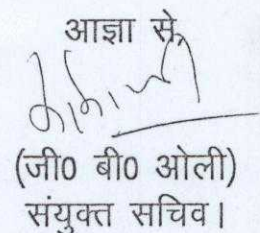 आज्ञा से,
(जी0 बी0 ओली)
संयुक्त सचिव।